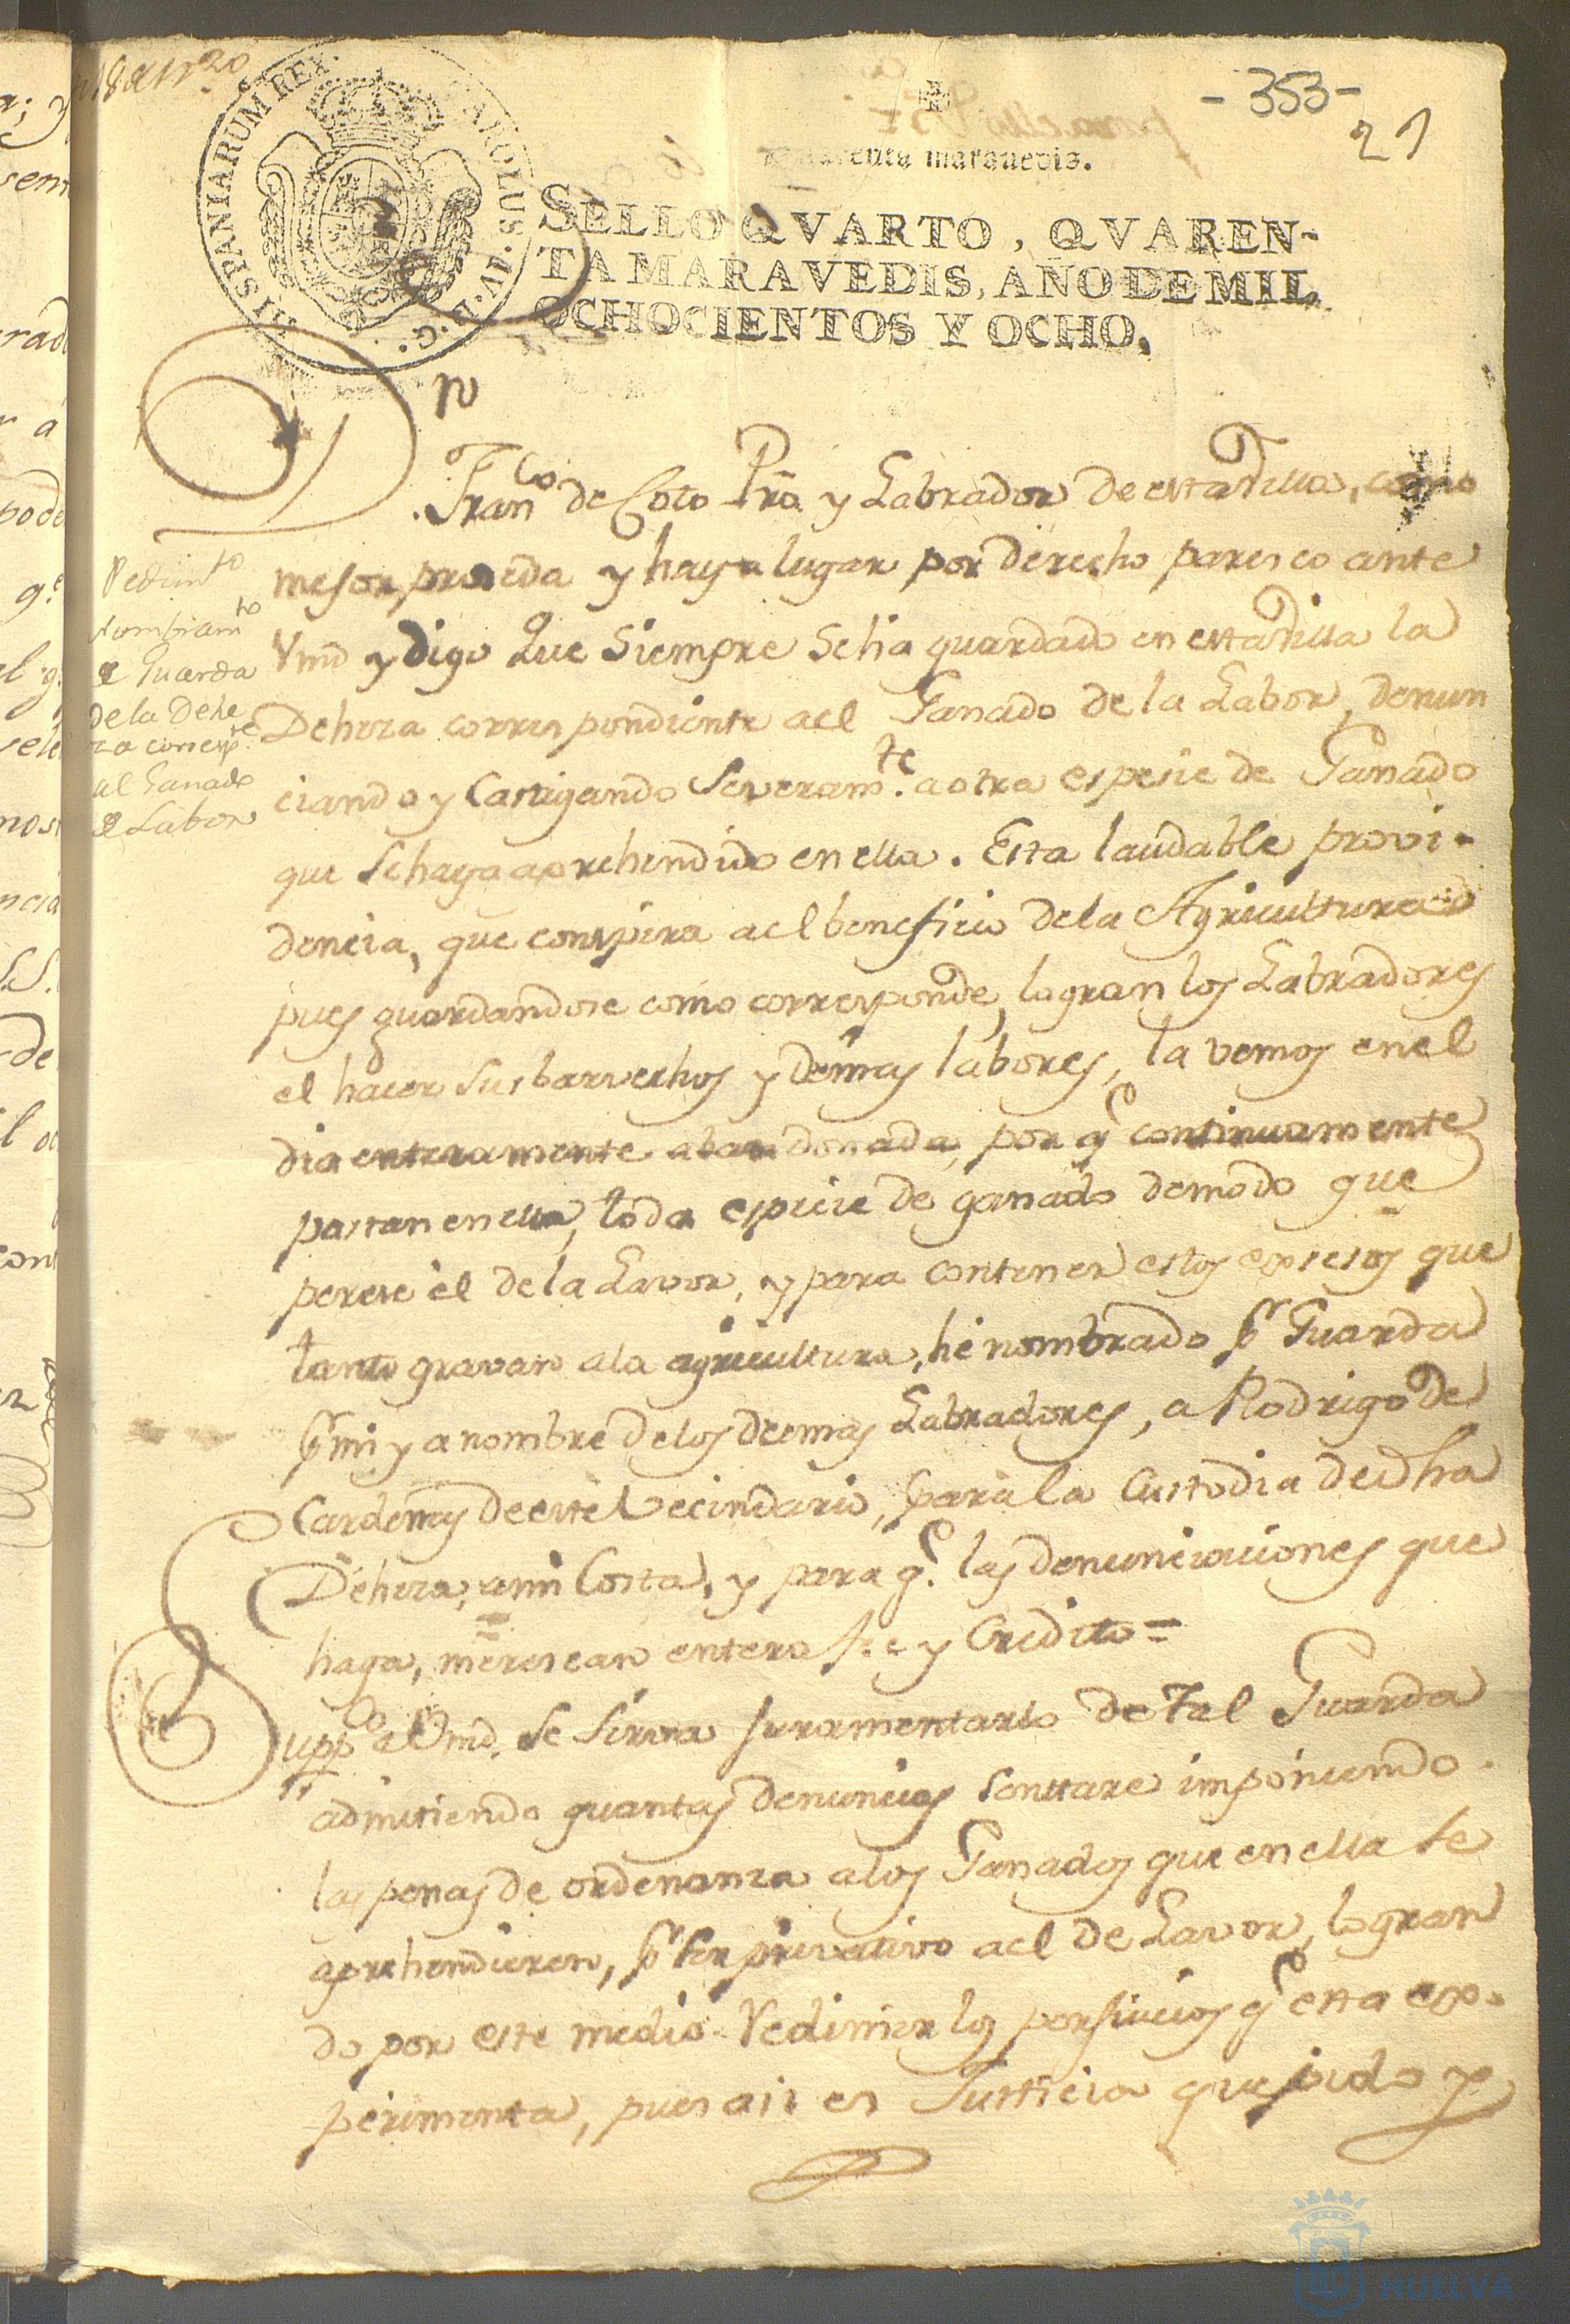 - 353 -
21
Quarenta maravedis.
HISPANIARUM REX.
CAROLUS. IV. D. G.
SELLO QVARTO, QVAREN-
TA MARAVEDIS, AÑO DE MIL
OCHOCIENTOS Y OCHO.
Franco de Coto Pro y Labrador de esta Villa, como
mejor proseda y haya lugar por derecho paresco ante
Vmd y digo Que Siempre Seha guardado en esta Villa la
Dehesa correspondiente a el Ganado de la Labor, denun
ciando y Castigando Severamte. a otra espesie de Ganado
que Sehaya aprehendido en ella. Esta laudable provi-
dencia, que conspira a el beneficio dela Agricultura
pues guardandose como corresponde, logran los Labradores
el hacer Sus barvechos y demas labores, la vemos enel
dia enteramente abandonada, por qe continuamente
pastan en ella, toda especie de ganado demodo que
perese èl de la Lavor, y para contener estos exsesos que
tanto gravan ala agricultura, hè nombrado pr Guarda
pr mi y a nombre delos demas Labradores, a Rodrigo de
Cardenas de este Vecindario, para la Custodia de dha
Dehesa, a mi Costa, y para qe. las denunciaciones que
haga, merescan entera fee y Credito =
Suppco a Vmd. Se Sirva juramentarlo de Tal Guarda
admitiendo quantas denuncias Senttare imponiendo
las penas de ordenanza alos Ganados que en ella se
aprehendieren, pr Ser privativo a el de Lavor, logran
do por este medio Redimir los perjuicios qe esta ex-
perimenta, pues asi es Justticia que pido y
Pedimto
Nombramto
de Guarda
dela Dehe
za correspte.
al Ganado
de Labor
HUELVA